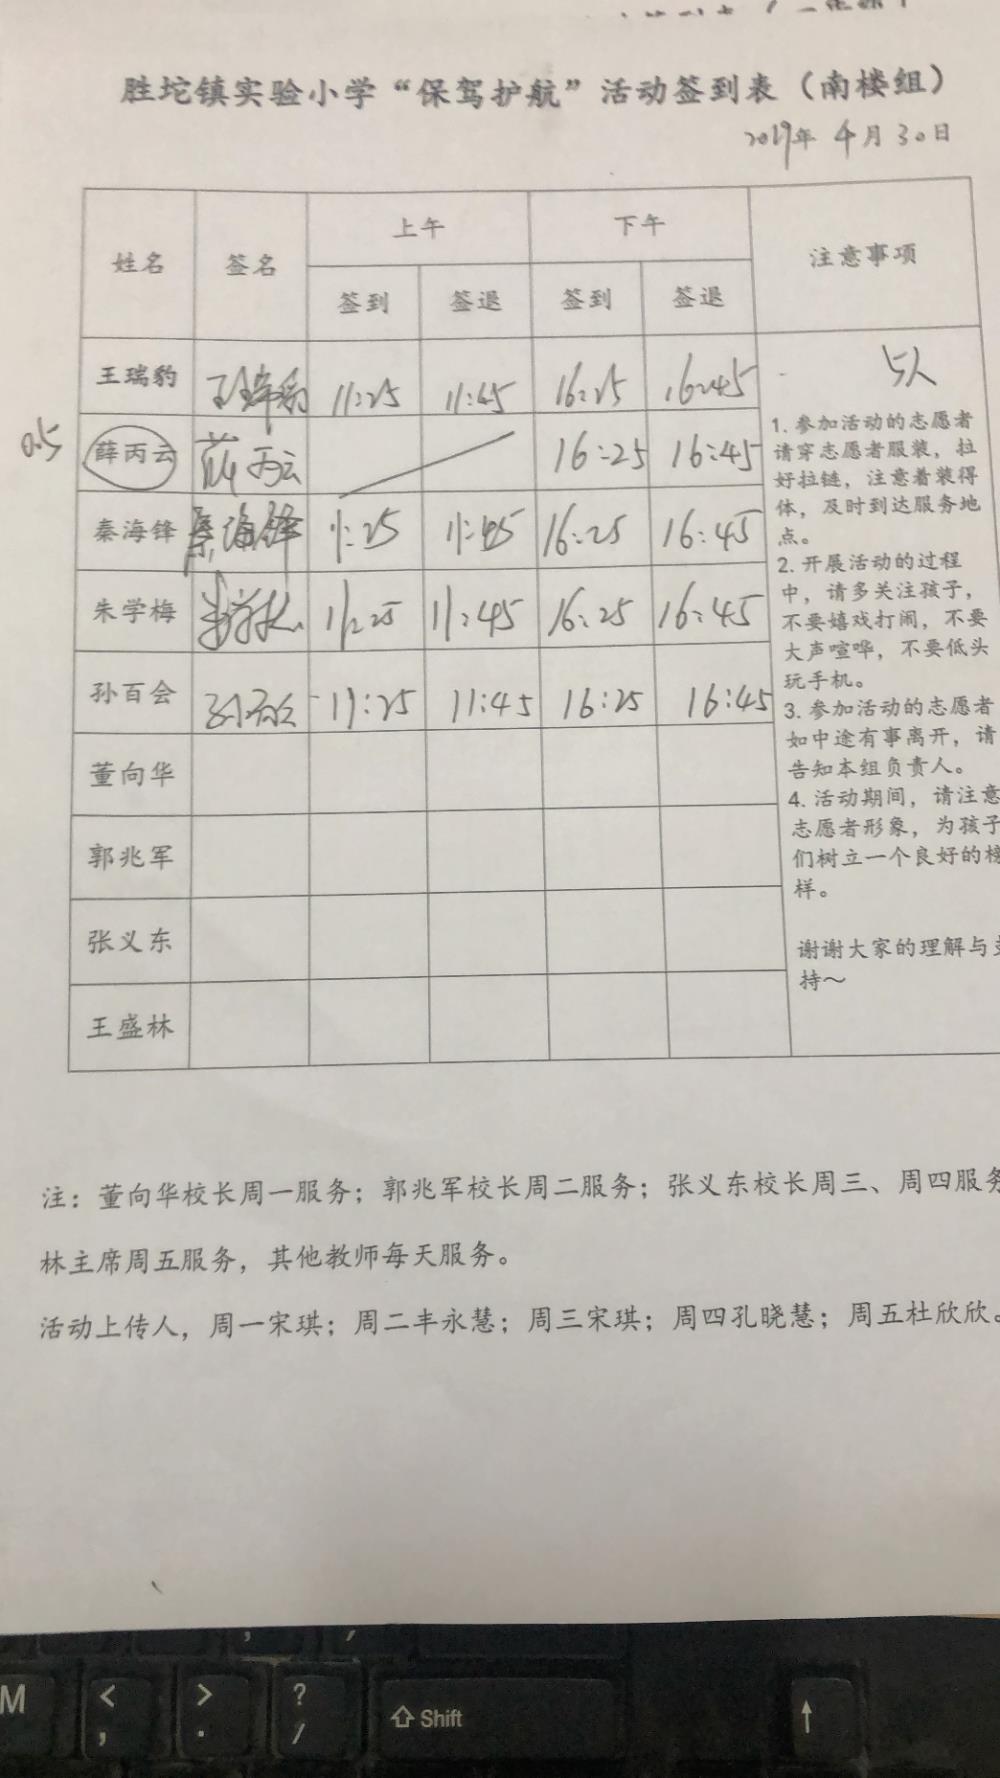 胜坨镇实验小学“保驾护航”活动签到表（南楼组）
2019年 4月 30日
姓名 签名 上午 下午 注意事项
签到 签退 签到 签退
王瑞豹 王瑞豹 11:25 11:45 16:25 16:45
5人
0.5 薛丙云 薛丙云 16:25 16:45
秦海锋 秦海锋 11:25 11:45 16:25 16:45
朱学梅 朱学梅 11:25 11:45 16:25 16:45
孙百会 孙百会 11:25 11:45 16:25 16:45
董向华
郭兆军
张义东
王盛林
1. 参加活动的志愿者
请穿志愿者服装，拉
好拉链，注意着装得
体，及时到达服务地
点。
2. 开展活动的过程
中，请多关注孩子，
不要嬉戏打闹，不要
大声喧哗，不要低头
玩手机。
3. 参加活动的志愿者
如中途有事离开，请
告知本组负责人。
4. 活动期间，请注意
志愿者形象，为孩子
们树立一个良好的榜
样。
谢谢大家的理解与支
持～
注：董向华校长周一服务；郭兆军校长周二服务；张义东校长周三、周四服务
林主席周五服务，其他教师每天服务。
活动上传人，周一宋琪；周二丰永慧；周三宋琪；周四孔晓慧；周五杜欣欣。
M < , > . ? / Shift ↑